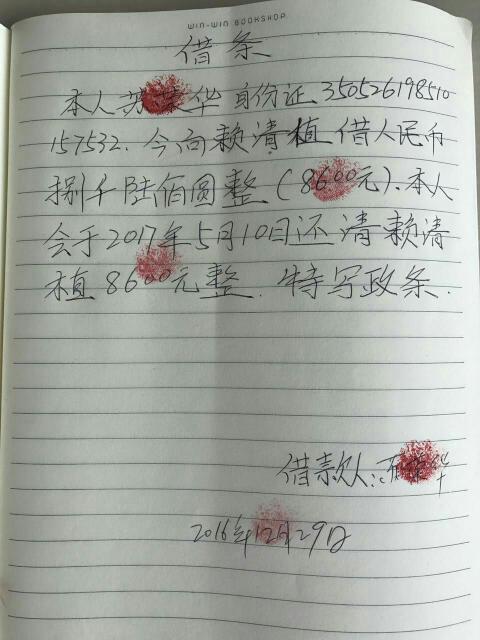 WIN-WIN BOOKSHOP
借条
本人苏荣华身份证350526198510
157532.今向赖清植借人民币
捌千陆佰圆整(8600元).本人
会于2017年5月10日还清赖清
植8600元整.特写政条.
借款人:苏荣华
2016年12月29日